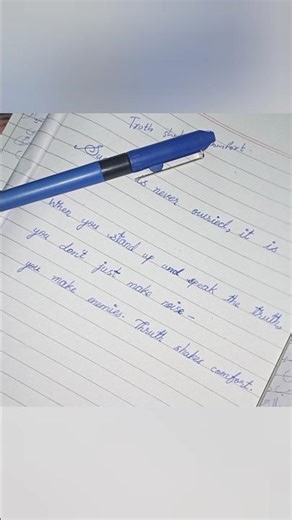 Troth
is never ousied, it is
When you stand up and speak the truth,
you don't just make noise -
you make enemies. Thruth shakes comfort.